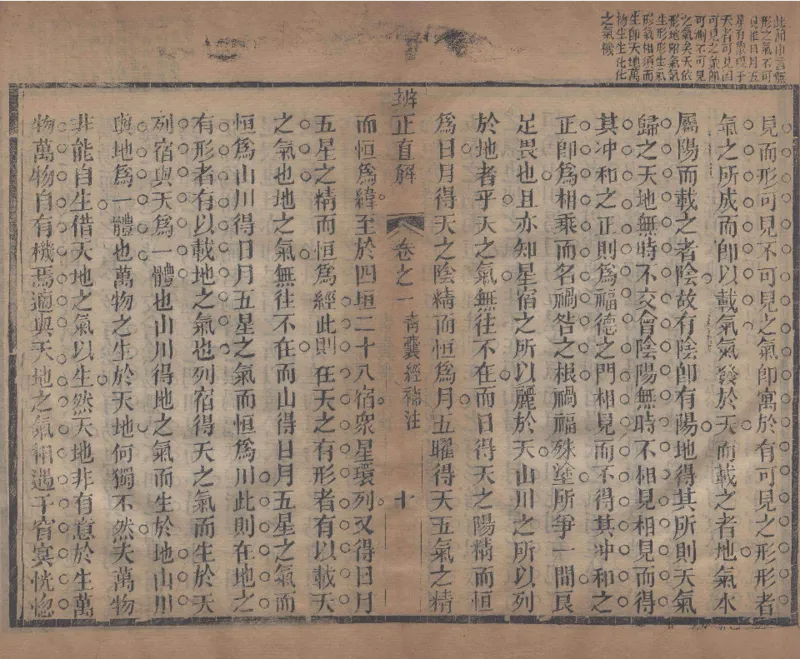 此節申言無
形之氣不可
見惟日月五
星有象于
天者可見因
可見之象即
可測不可見
之氣矣天依
形地附氣氣
生形形生氣
形氣相須而
生即天地萬
物生生化化
之氣機
見而形可見不可見之氣卽寓於有可見之形形者
氣之所成而卽以載氣氣發於天而載之者地氣本
屬陽而載之者陰故有陰卽有陽地得其所則天氣
歸之天地無時不交會陰陽無時不相見相見而得
其冲和之正則爲福德之門相見而不得其冲和之
正卽爲相乘而名禍咎之根禍福殊塗所爭一間良
足畏也且亦知星宿之所以麗於天山川之所以列
於地者乎天之氣無往不在而日得天之陽精而恒
爲日月得天之陰精而恒爲月五曜得天五氣之精
辨正直解
卷之一
靑囊經補注
十
而恒爲緯至於四垣二十八宿衆星環列又得日月
五星之精而恒爲經此則在天之有形者有以載天
之氣也地之氣無往不在而山得日月五星之氣而
恒爲山川得日月五星之氣而恒爲川此則在地之
有形者有以載地之氣也列宿得天之氣而生於天
列宿與天爲一體也山川得地之氣而生於地山川
與地爲一體也萬物之生於天地何獨不然夫萬物
非能自生借天地之氣以生然天地非有意於生萬
物萬物自有機焉適與天地之氣相遇于窅冥恍惚